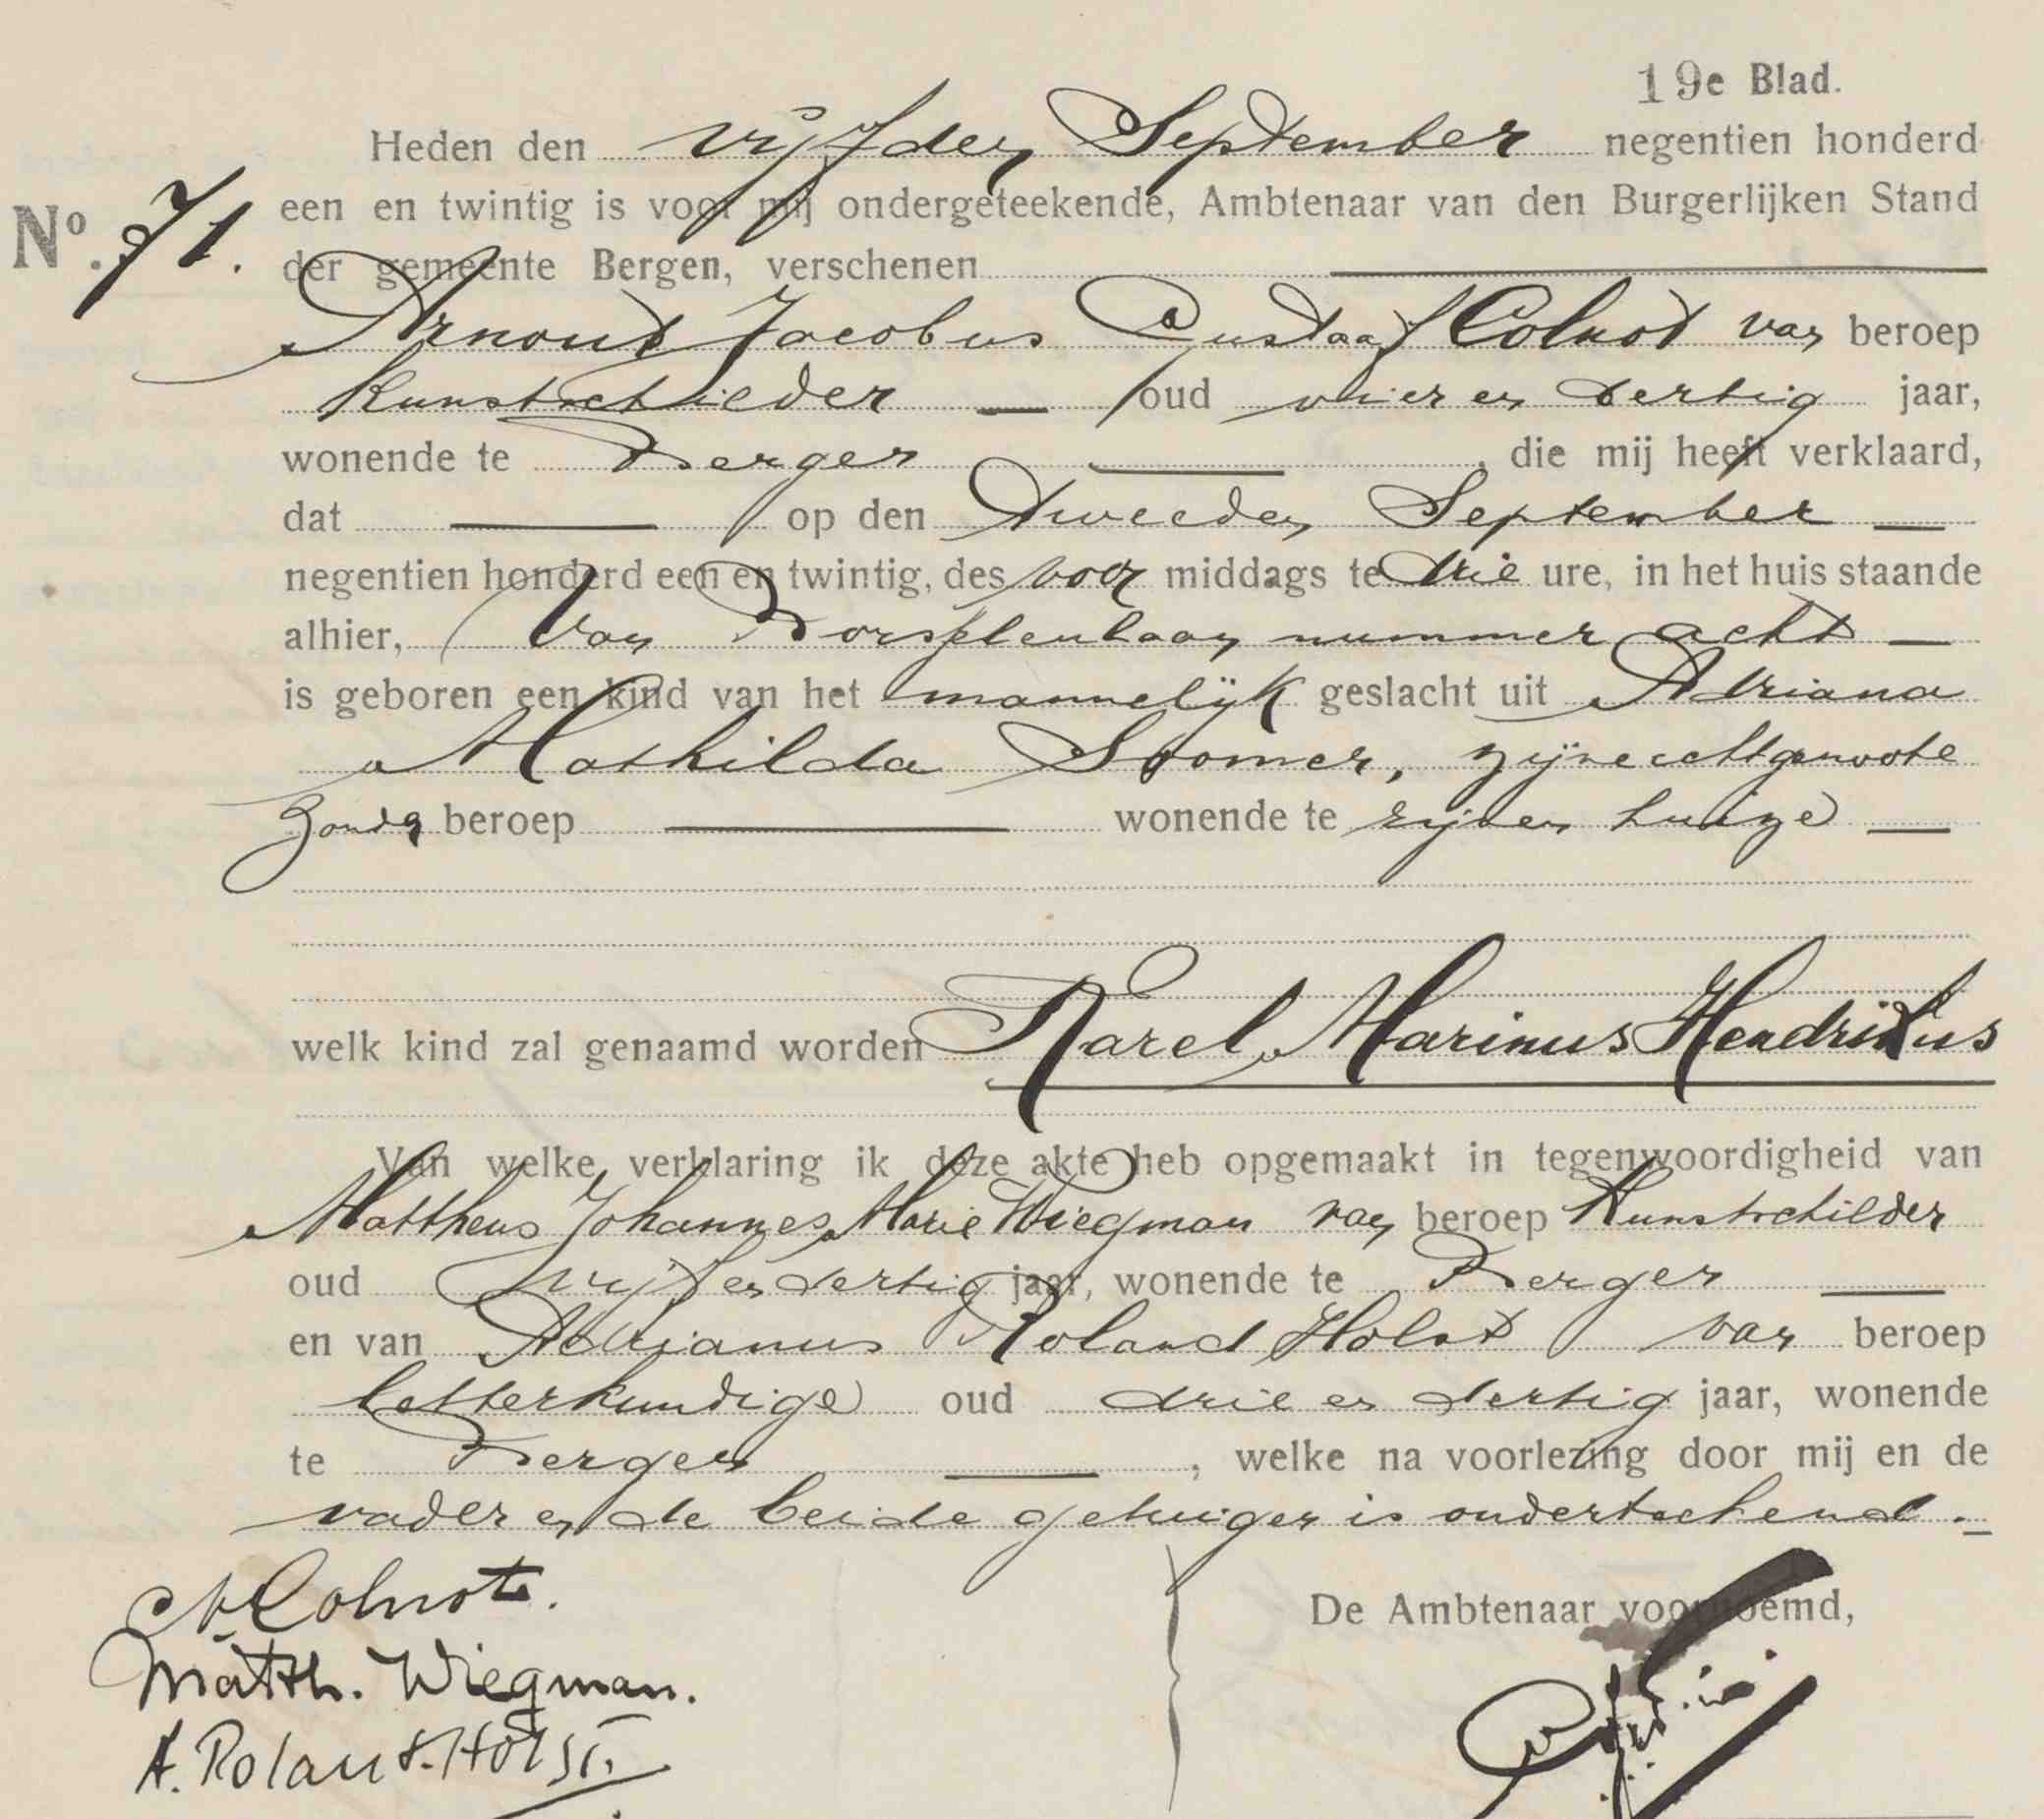 19e Blad.
Heden den vijfden September negentien honderd
No. 71. een en twintig is voor mij ondergeteekende, Ambtenaar van den Burgerlijken Stand
der gemeente Bergen, verschenen
Arnout Jacobus Gustaaf Colnot van beroep
Kunstschilder oud vier en dertig jaar,
wonende te Bergen, die mij heeft verklaard,
dat op den tweeden September
negentien honderd een en twintig, des voor middags te drie ure, in het huis staande
alhier, Van Borsselenlaan nummer acht
is geboren een kind van het mannelijk geslacht uit Adriana
Mathilda Soomer, zijne echtgenoote
zonder beroep wonende te zijnen huize
welk kind zal genaamd worden Karel Marinus Hendrikus
Van welke verklaring ik deze akte heb opgemaakt in tegenwoordigheid van
Mattheus Johannes Marie Wiegman van beroep Kunstschilder
oud vijf en dertig jaar, wonende te Bergen
en van Adrianus Roland Holst van beroep
letterkundige oud drie en dertig jaar, wonende
te Bergen, welke na voorlezing door mij en de
vader en de beide getuigen is onderteekend.
A Colnot.
De Ambtenaar voornoemd,
Matth. Wiegman.
A. Roland. Holst.